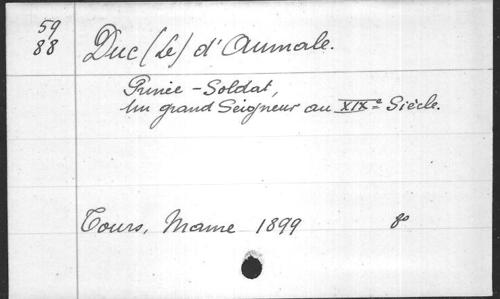 59
88
Duc (Le) d'Aumale.
Prince - Soldat,
Un grand Seigneur au XIXe Siècle.
Tours, Mame 1899 8o